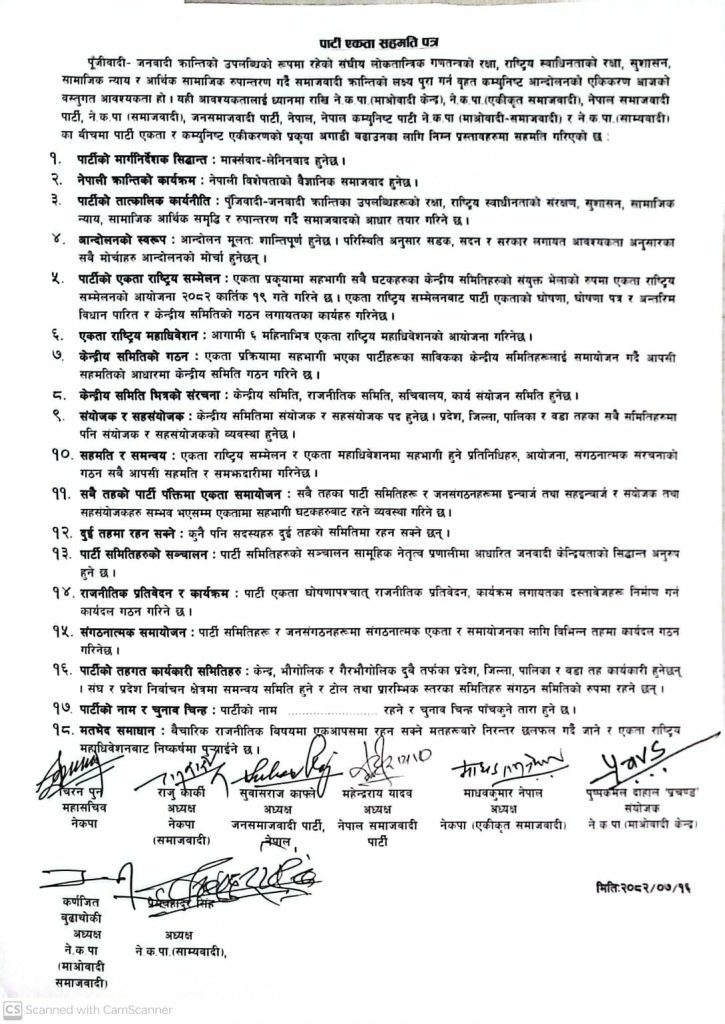 पार्टी एकता सहमति पत्र
पूँजीवादी- जनवादी क्रान्तिको उपलब्धिको रूपमा रहेको संघीय लोकतान्त्रिक गणतन्त्रको रक्षा, राष्ट्रिय स्वाधिनताको रक्षा, सुशासन,
सामाजिक न्याय र आर्थिक सामाजिक रुपान्तरण गर्दै समाजवादी क्रान्तिको लक्ष्य पुरा गर्न वृहत कम्युनिष्ट आन्दोलनको एकिकरण आजको
वस्तुगत आवश्यकता हो । यही आवश्यकतालाई ध्यानमा राखि ने.क.पा.(माओवादी केन्द्र), ने.क.पा.(एकीकृत समाजवादी), नेपाल समाजवादी
पार्टी, ने.क.पा (समाजवादी), जनसमाजवादी पार्टी, नेपाल, नेपाल कम्युनिष्ट पार्टी ने.क.पा (माओवादी-समाजवादी) र ने.क.पा.(साम्यवादी)
का बीचमा पार्टी एकता र कम्युनिष्ट एकीकरणको प्रकृया अगाडी बढाउनका लागि निम्न प्रस्तावहरुमा सहमति गरिएको छ :
१. पार्टीको मार्गनिर्देशक सिद्धान्त : मार्क्सवाद-लेनिनवाद हुनेछ ।
२. नेपाली क्रान्तिको कार्यक्रम : नेपाली विशेषताको वैज्ञानिक समाजवाद हुनेछ ।
३. पार्टीको तात्कालिक कार्यनीति : पुँजिवादी-जनवादी क्रान्तिका उपलब्धिहरुको रक्षा, राष्ट्रिय स्वाधीनताको संरक्षण, सुशासन, सामाजिक
न्याय, सामाजिक आर्थिक समृद्धि र रुपान्तरण गर्दै समाजवादको आधार तयार गरिने छ ।
४. आन्दोलनको स्वरूप : आन्दोलन मूलतः शान्तिपूर्ण हुनेछ । परिस्थिति अनुसार सडक, सदन र सरकार लगायत आवश्यकता अनुसारका
सबै मोर्चाहरु आन्दोलनको मोर्चा हुनेछन् ।
५. पार्टीको एकता राष्ट्रिय सम्मेलन : एकता प्रकृयामा सहभागी सबै घटकहरुका केन्द्रीय समितिहरुको संयुक्त भेलाको रुपमा एकता राष्ट्रिय
सम्मेलनको आयोजना २०८२ कार्तिक १९ गते गरिने छ । एकता राष्ट्रिय सम्मेलनबाट पार्टी एकताको घोषणा, घोषणा पत्र र अन्तरिम
विधान पारित र केन्द्रीय समितिको गठन लगायतका कार्यहरु गरिनेछ ।
६. एकता राष्ट्रिय महाधिवेशन : आगामी ६ महिनाभित्र एकता राष्ट्रिय महाधिवेशनको आयोजना गरिनेछ ।
७. केन्द्रीय समितिको गठन : एकता प्रक्रियामा सहभागी भएका पार्टीहरूका साविकका केन्द्रीय समितिहरूलाई समायोजन गर्दै आपसी
सहमतिको आधारमा केन्द्रीय समिति गठन गरिने छ ।
८. केन्द्रीय समिति भित्रको संरचना : केन्द्रीय समिति, राजनीतिक समिति, सचिवालय, कार्य संयोजन समिति हुनेछ ।
९. संयोजक र सहसंयोजक : केन्द्रीय समितिमा संयोजक र सहसंयोजक पद हुनेछ । प्रदेश, जिल्ला, पालिका र वडा तहका सबै समितिहरुमा
पनि संयोजक र सहसंयोजकको व्यवस्था हुनेछ ।
१०. सहमति र समन्वय : एकता राष्ट्रिय सम्मेलन र एकता महाधिवेशनमा सहभागी हुने प्रतिनिधिहरु, आयोजना, संगठनात्मक संरचनाको
गठन सबै आपसी सहमति र समझदारीमा गरिनेछ ।
११. सबै तहको पार्टी पंक्तिमा एकता समायोजन : सबै तहका पार्टी समितिहरू र जनसंगठनहरूमा इन्चार्ज तथा सहइन्चार्ज र संयोजक तथा
सहसंयोजकहरु सम्भव भएसम्म एकतामा सहभागी घटकहरुबाट रहने व्यवस्था गरिने छ ।
१२. दुई तहमा रहन सक्ने : कुनै पनि सदस्यहरु दुई तहको समितिमा रहन सक्ने छन् ।
१३. पार्टी समितिहरुको सञ्चालन : पार्टी समितिहरुको सञ्चालन सामूहिक नेतृत्व प्रणालीमा आधारित जनवादी केन्द्रियताको सिद्धान्त अनुरुप
हुने छ ।
१४. राजनीतिक प्रतिवेदन र कार्यक्रम : पार्टी एकता घोषणापश्चात् राजनीतिक प्रतिवेदन, कार्यक्रम लगायतका दस्तावेजहरू निर्माण गर्न
कार्यदल गठन गरिने छ ।
१५. संगठनात्मक समायोजन : पार्टी समितिहरू र जनसंगठनहरूमा संगठनात्मक एकता र समायोजनका लागि विभिन्न तहमा कार्यदल गठन
गरिनेछ ।
१६. पार्टीको तहगत कार्यकारी समितिहरु : केन्द्र, भौगोलिक र गैरभौगोलिक दुबै तर्फका प्रदेश, जिल्ला, पालिका र वडा तह कार्यकारी हुनेछन्
। संघ र प्रदेश निर्वाचन क्षेत्रमा समन्वय समिति हुने र टोल तथा प्रारम्भिक स्तरका समितिहरु संगठन समितिको रुपमा रहने छन् ।
१७. पार्टीको नाम र चुनाव चिन्ह : पार्टीको नाम ........................ रहने र चुनाव चिन्ह पाँचकुने तारा हुने छ ।
१८. मतभेद समाधान : वैचारिक राजनीतिक विषयमा एकआपसमा रहन सक्ने मतहरूबारे निरन्तर छलफल गर्दै जाने र एकता राष्ट्रिय
महाधिवेशनबाट निष्कर्षमा पुऱ्याईने छ ।
चिरन पुन
महासचिव
नेकपा
राजु कार्की
अध्यक्ष
नेकपा
(समाजवादी)
सुवासराज काफ्ले
अध्यक्ष
जनसमाजवादी पार्टी,
नेपाल
महेन्द्रराय यादव
अध्यक्ष
नेपाल समाजवादी
पार्टी
माधवकुमार नेपाल
अध्यक्ष
नेकपा (एकीकृत समाजवादी)
पुष्पकमल दाहाल 'प्रचण्ड'
संयोजक
ने.क.पा (माओवादी केन्द्र)
कर्णजित
बुढाथोकी
अध्यक्ष
ने.क.पा
(माओवादी
समाजवादी)
प्रेमबहादुर सिंह
अध्यक्ष
ने.क.पा.(साम्यवादी),
मिति:२०८२/०७/१६
CS Scanned with CamScanner